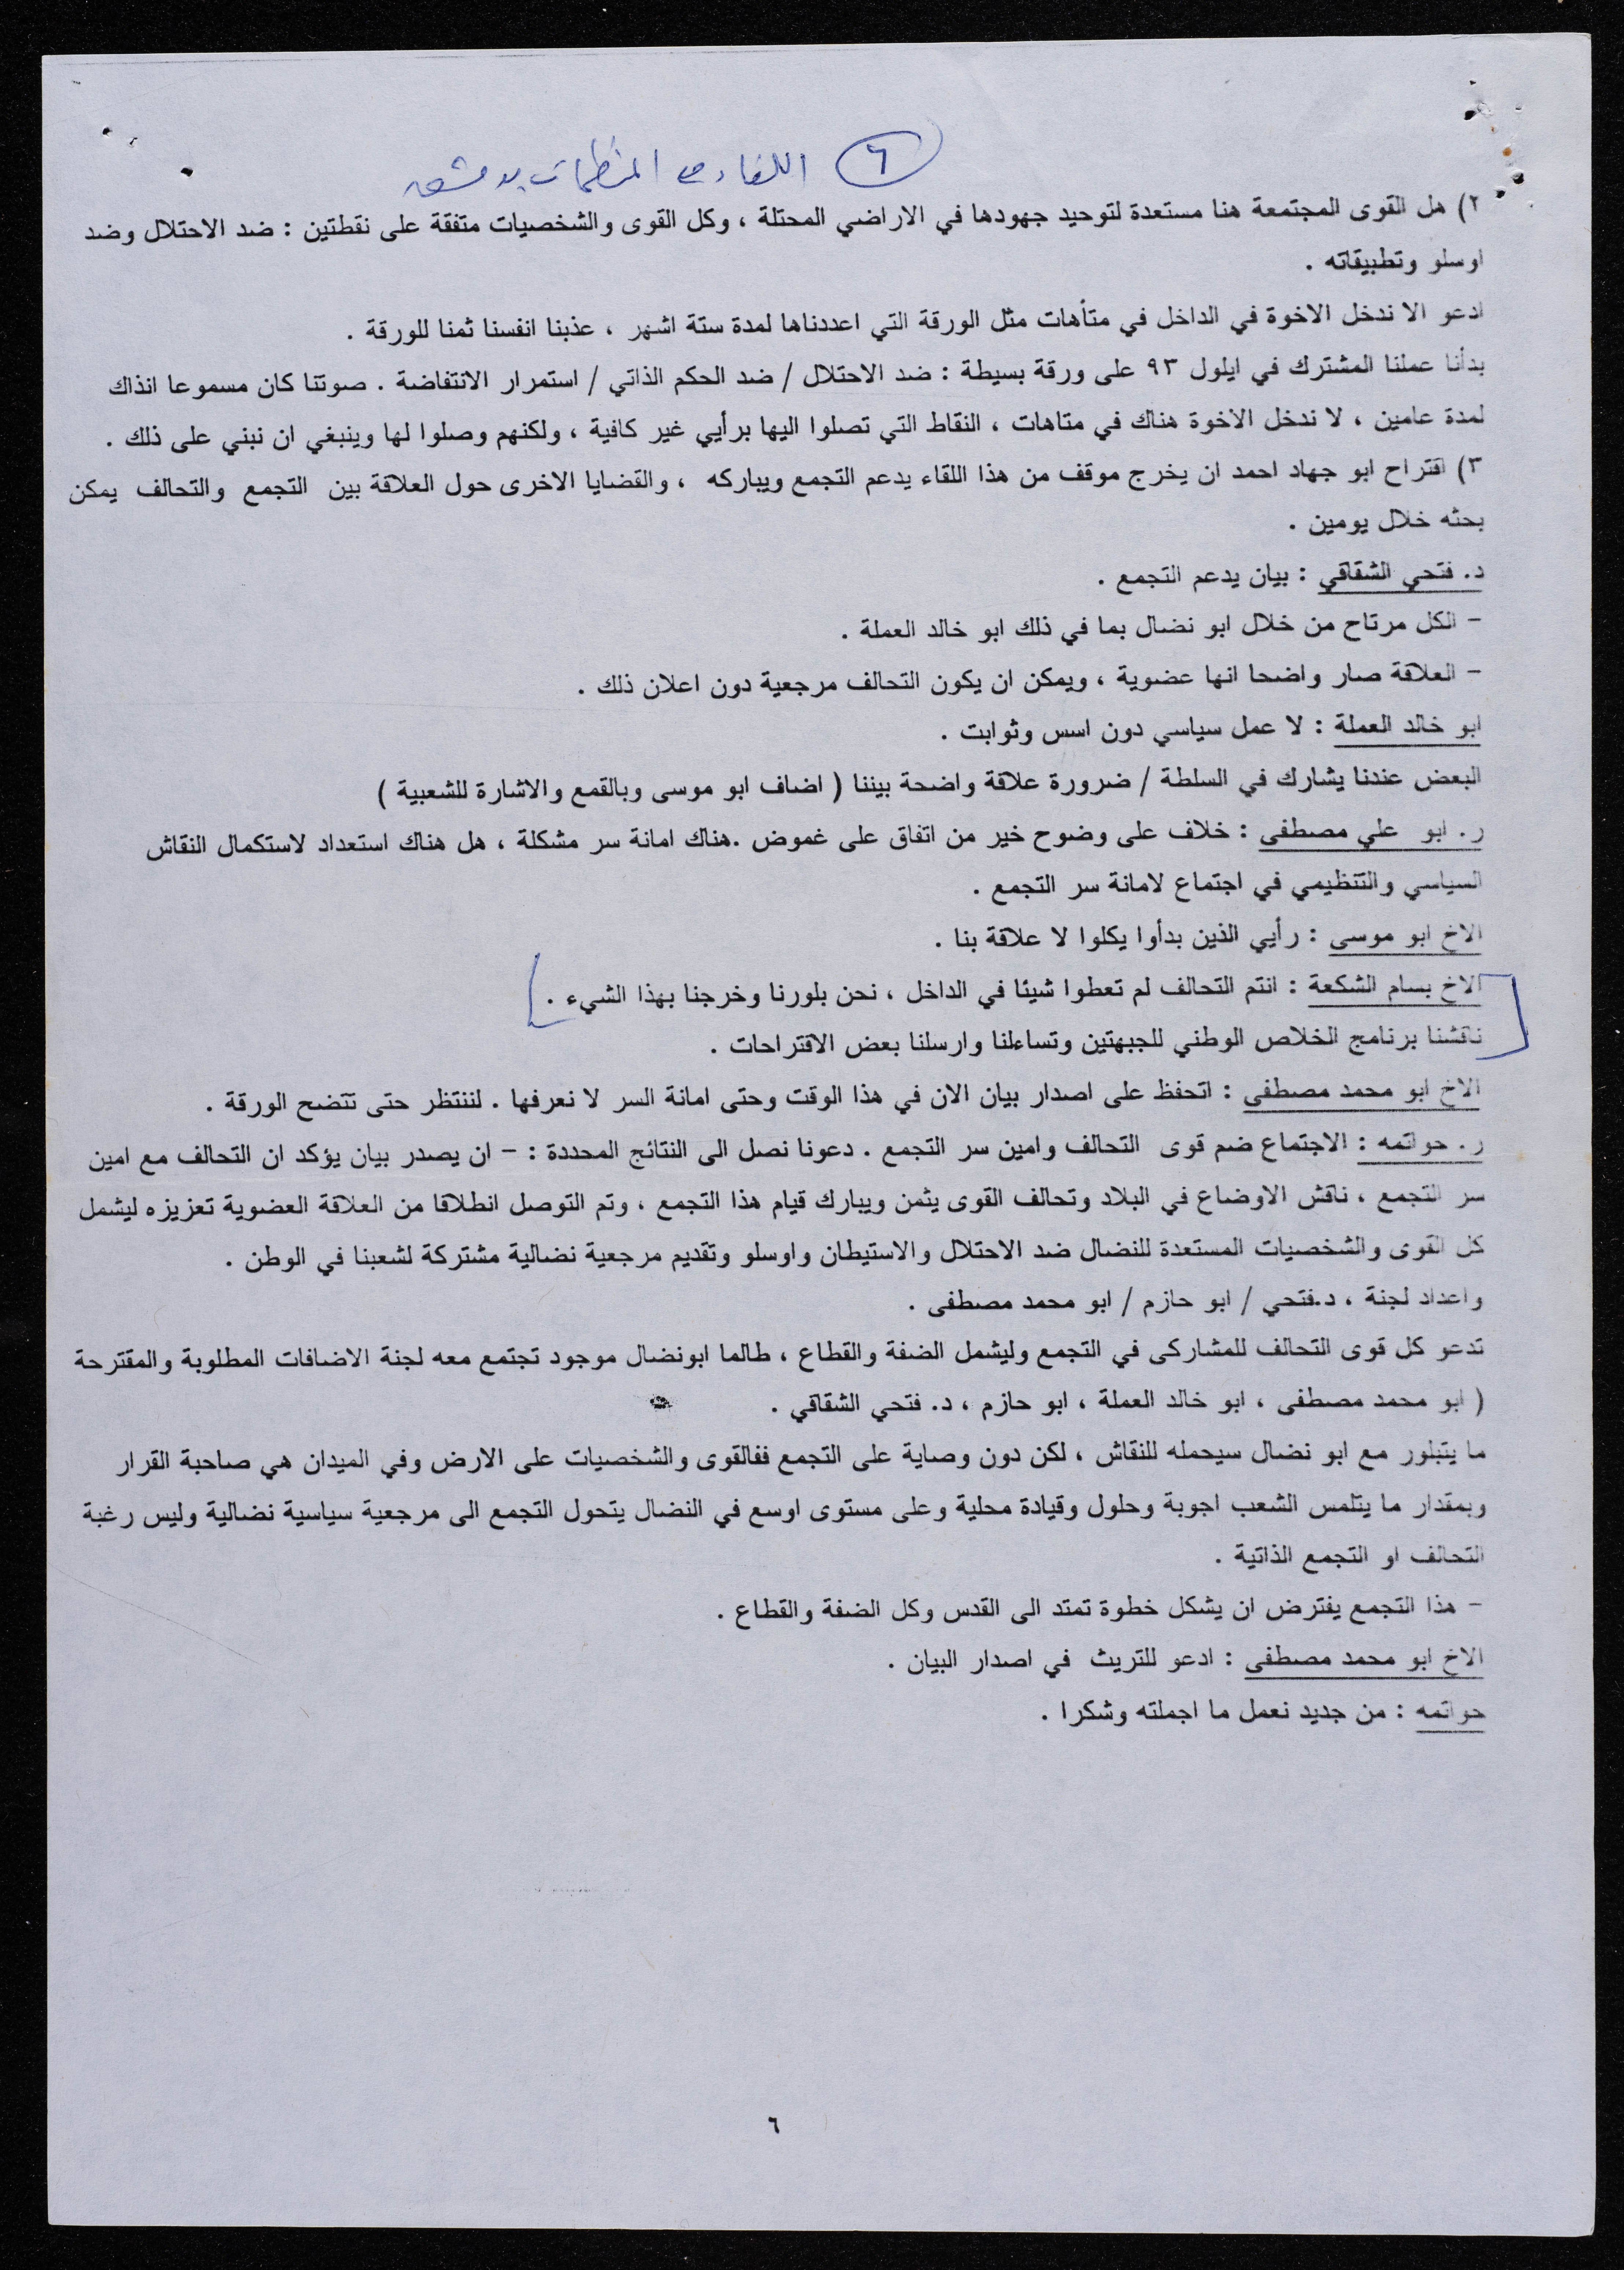 ٦ اللقاء مع المنظمات بدمشق
٢) هل القوى المجتمعة هنا مستعدة لتوحيد جهودها في الاراضي المحتلة ، وكل القوى والشخصيات متفقة على نقطتين : ضد الاحتلال وضد
اوسلو وتطبيقاته .
ادعو الا ندخل الاخوة في الداخل في متأهات مثل الورقة التي اعددناها لمدة ستة اشهر ، عذبنا انفسنا ثمنا للورقة .
بدأنا عملنا المشترك في ايلول ٩٣ على ورقة بسيطة : ضد الاحتلال / ضد الحكم الذاتي / استمرار الانتفاضة . صوتنا كان مسموعا انذاك
لمدة عامين ، لا ندخل الاخوة هناك في متاهات ، النقاط التي تصلوا اليها برأيي غير كافية ، ولكنهم وصلوا لها وينبغي ان نبني على ذلك .
٣) اقتراح ابو جهاد احمد ان يخرج موقف من هذا اللقاء يدعم التجمع ويباركه ، والقضايا الاخرى حول العلاقة بين التجمع والتحالف يمكن
بحثه خلال يومين .
د. فتحي الشقاقي : بيان يدعم التجمع .
- الكل مرتاح من خلال ابو نضال بما في ذلك ابو خالد العملة .
- العلاقة صار واضحا انها عضوية ، ويمكن ان يكون التحالف مرجعية دون اعلان ذلك .
ابو خالد العملة : لا عمل سياسي دون اسس وثوابت .
البعض عندنا يشارك في السلطة / ضرورة علاقة واضحة بيننا ( اضاف ابو موسى وبالقمع والاشارة للشعبية )
ر. ابو علي مصطفى : خلاف على وضوح خير من اتفاق على غموض .هناك امانة سر مشكلة ، هل هناك استعداد لاستكمال النقاش
السياسي والتنظيمي في اجتماع لامانة سر التجمع .
الاخ ابو موسى : رأيي الذين بدأوا يكلوا لا علاقة بنا .
الاخ بسام الشكعة : انتم التحالف لم تعطوا شيئا في الداخل ، نحن بلورنا وخرجنا بهذا الشيء .
ناقشنا برنامج الخلاص الوطني للجبهتين وتساءلنا وارسلنا بعض الاقتراحات .
الاخ ابو محمد مصطفى : اتحفظ على اصدار بيان الان في هذا الوقت وحتى امانة السر لا نعرفها . لننتظر حتى تتضح الورقة .
ر. حواتمه : الاجتماع ضم قوى التحالف وامين سر التجمع . دعونا نصل الى النتائج المحددة : - ان يصدر بيان يؤكد ان التحالف مع امين
سر التجمع ، ناقش الاوضاع في البلاد وتحالف القوى يثمن ويبارك قيام هذا التجمع ، وتم التوصل انطلاقا من العلاقة العضوية تعزيزه ليشمل
كل القوى والشخصيات المستعدة للنضال ضد الاحتلال والاستيطان واوسلو وتقديم مرجعية نضالية مشتركة لشعبنا في الوطن .
واعداد لجنة ، د.فتحي / ابو حازم / ابو محمد مصطفى .
تدعو كل قوى التحالف للمشاركى في التجمع وليشمل الضفة والقطاع ، طالما ابونضال موجود تجتمع معه لجنة الاضافات المطلوبة والمقترحة
( ابو محمد مصطفى ، ابو خالد العملة ، ابو حازم ، د. فتحي الشقاقي .
ما يتبلور مع ابو نضال سيحمله للنقاش ، لكن دون وصاية على التجمع ففالقوى والشخصيات على الارض وفي الميدان هي صاحبة القرار
وبمقدار ما يتلمس الشعب اجوبة وحلول وقيادة محلية وعلى مستوى اوسع في النضال يتحول التجمع الى مرجعية سياسية نضالية وليس رغبة
التحالف او التجمع الذاتية .
- هذا التجمع يفترض ان يشكل خطوة تمتد الى القدس وكل الضفة والقطاع .
الاخ ابو محمد مصطفى : ادعو للتريث في اصدار البيان .
حواتمه : من جديد نعمل ما اجملته وشكرا .
٦